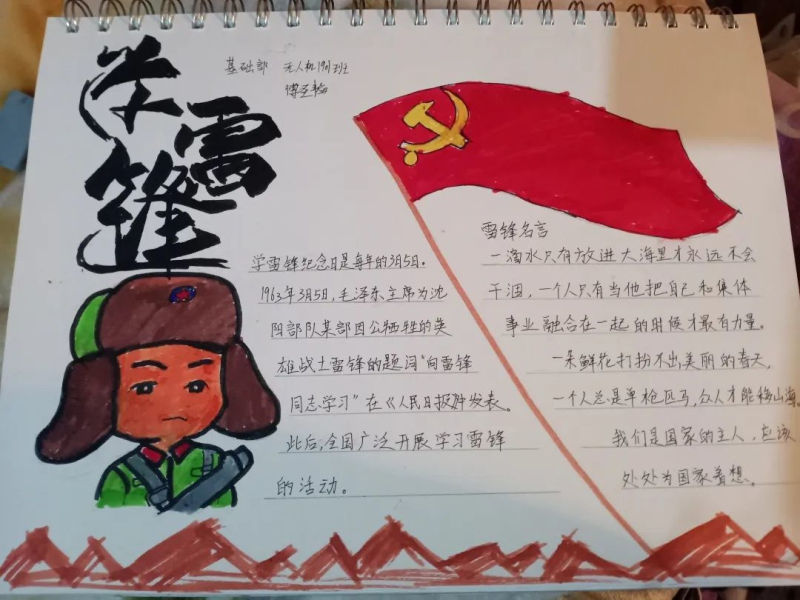 学雷锋
基础部 无人机1901班
学雷锋纪念日是每年的3月5日。
1963年3月5日,毛泽东主席为沈
阳部队某部因公牺牲的英
雄战士雷锋的题词"向雷锋
同志学习"在《人民日报》发表。
此后,全国广泛开展学习雷锋
的活动。
雷锋名言
一滴水只有放进大海里才永远不会
干涸,一个人只有当他把自己和集体
事业融合在一起的时候才最有力量。
一朵鲜花打扮不出美丽的春天,
一个人总是单枪匹马,众人才能移山海
我们是国家的主人,应该
处处为国家着想。